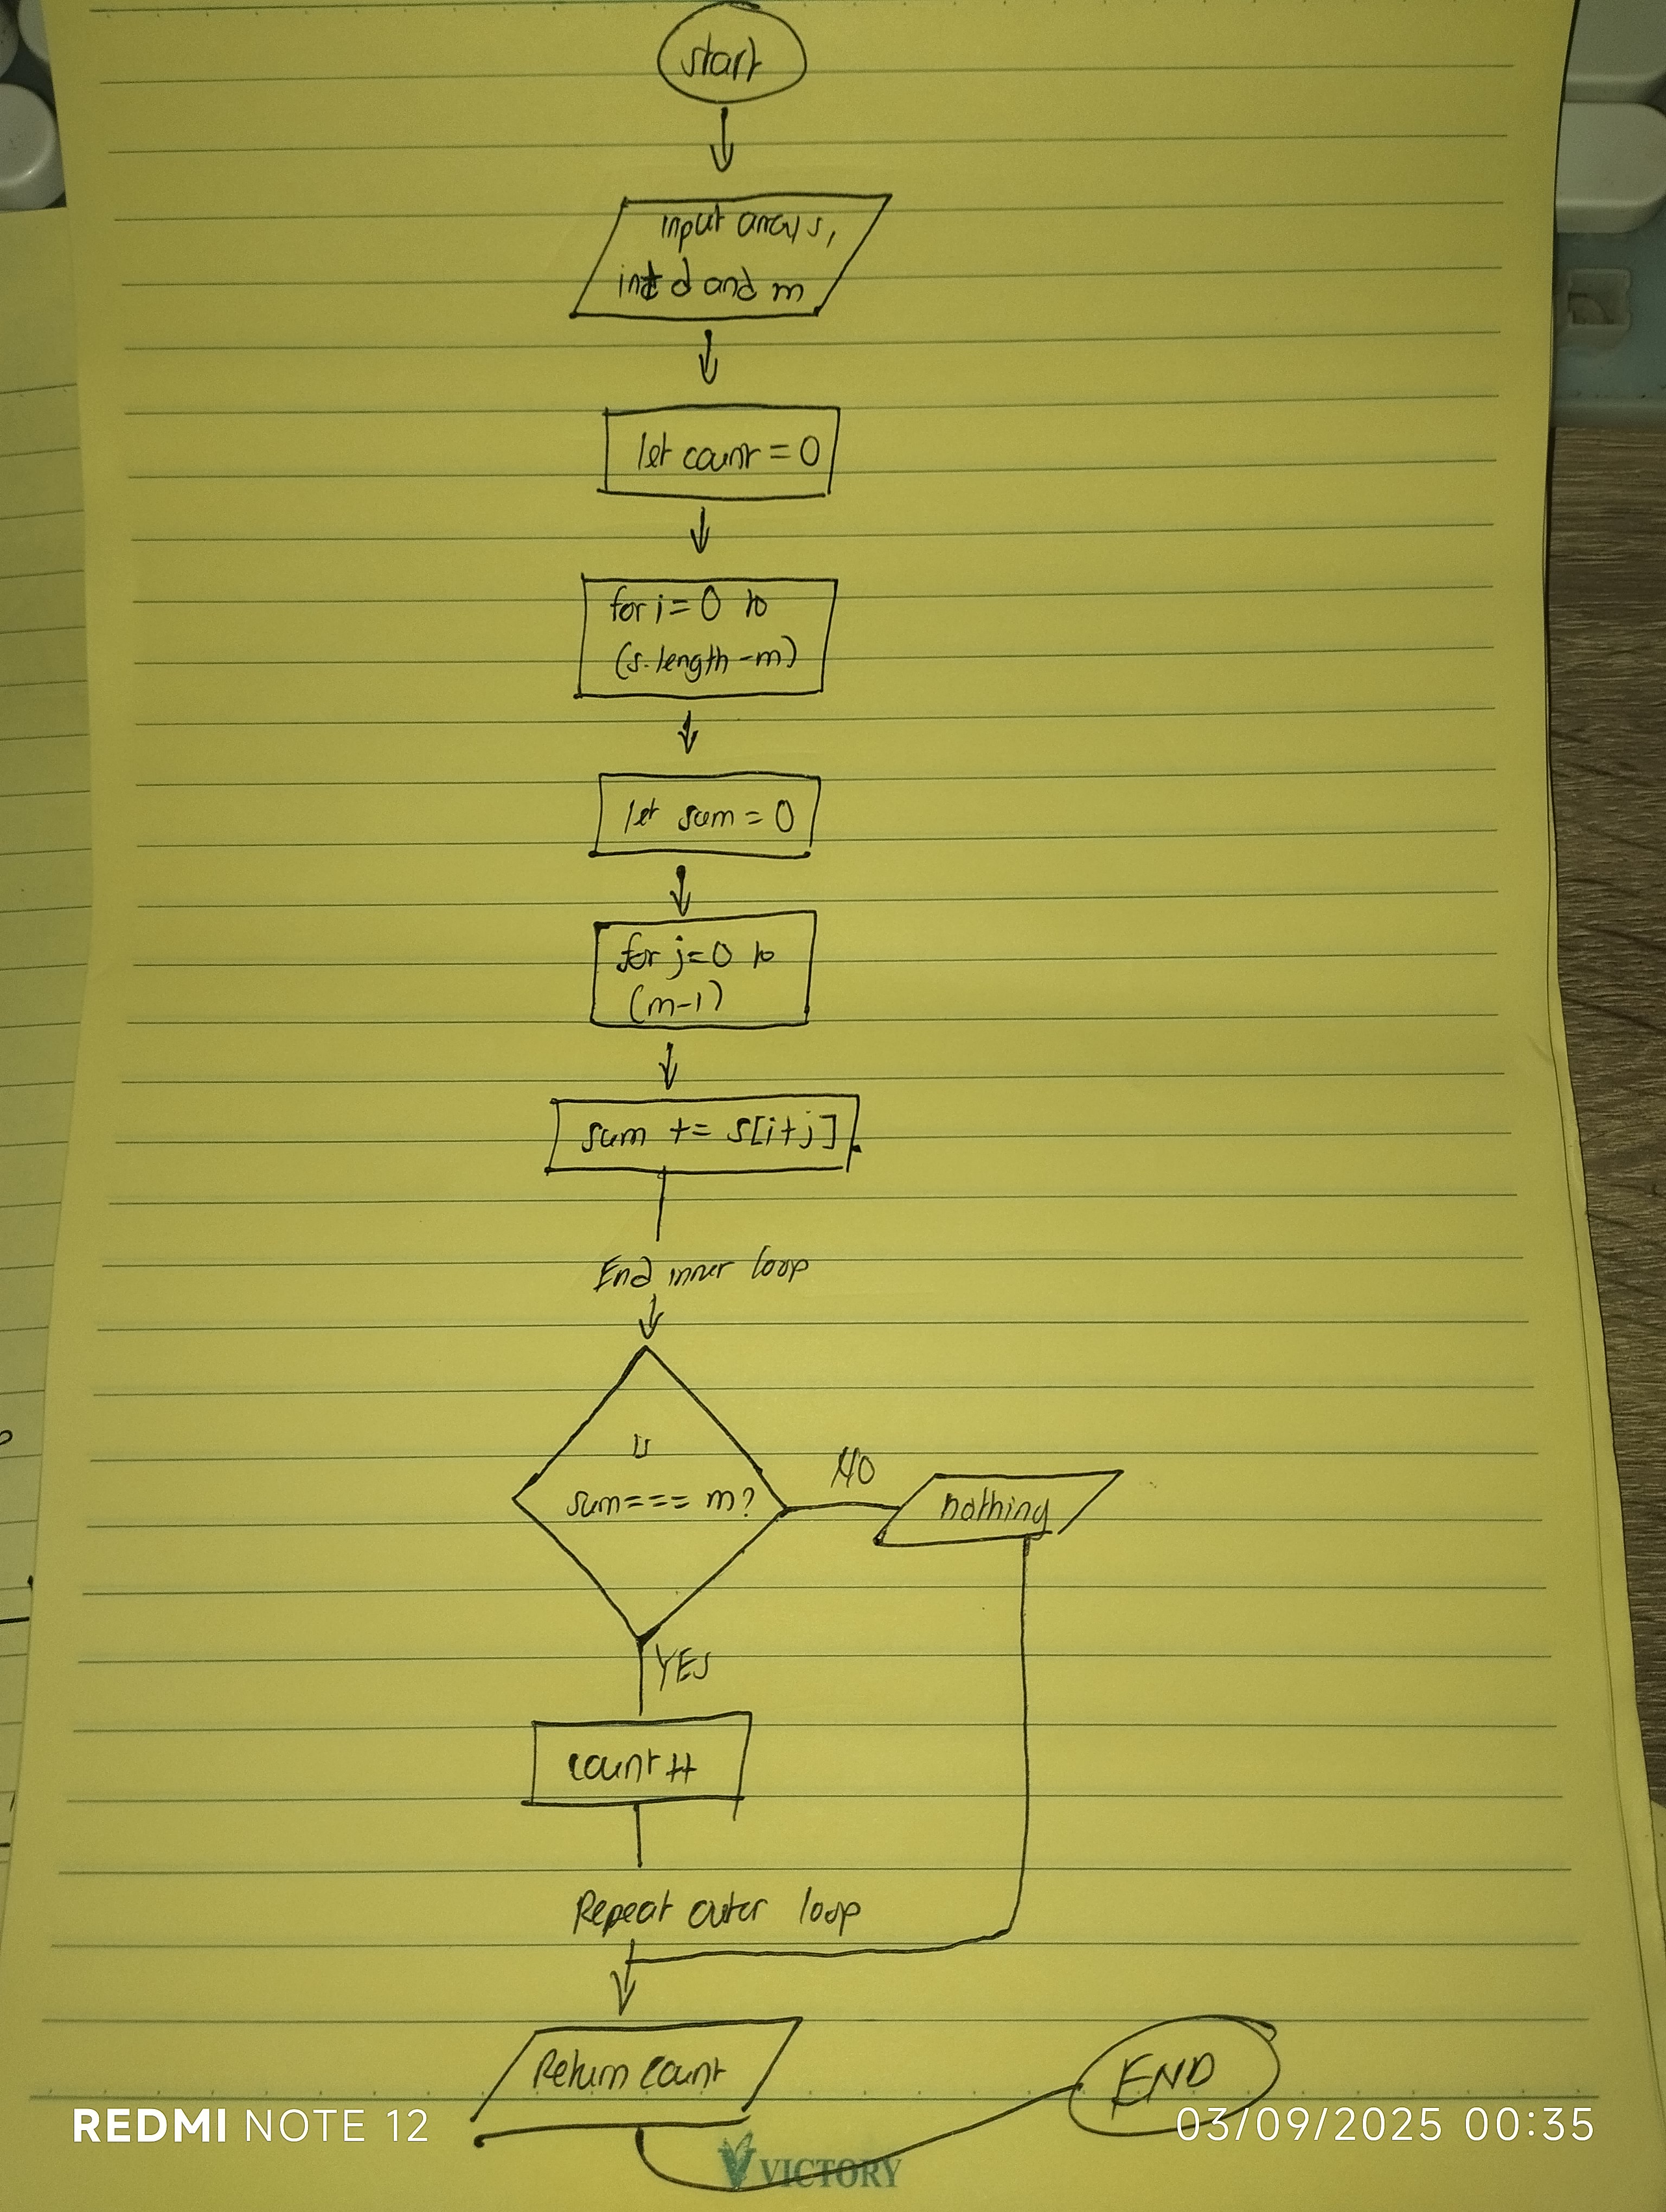 start
input array s,
int d and m
let count = 0
for i = 0 to
(s.length - m)
let sum = 0
for j = 0 to
(m-1)
sum += s[i+j]
End inner loop
is
sum === m?
NO
nothing
YES
count ++
Repeat outer loop
Return count
END
REDMI NOTE 12
03/09/2025 00:35
VICTORY